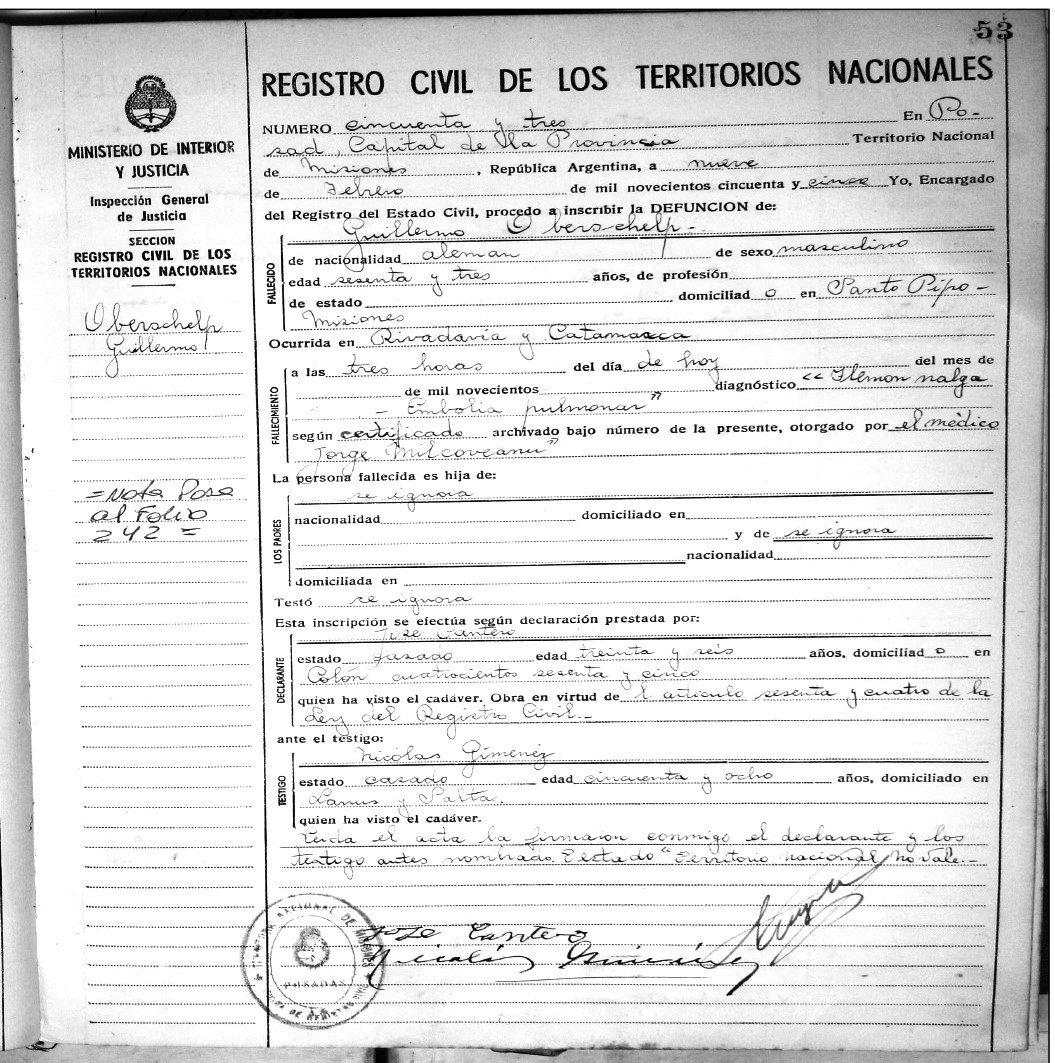 53
REGISTRO CIVIL DE LOS TERRITORIOS NACIONALES
NUMERO cincuenta y tres En Po-
sad, Capital de la Provincia Territorio Nacional
de Misiones, República Argentina, a nueve
de Febrero de mil novecientos cincuenta y cinco Yo, Encargado
del Registro del Estado Civil, procedo a inscribir la DEFUNCION de:
Guillermo Oberschelp-
FALLECIDO
de nacionalidad aleman de sexo masculino
edad sesenta y tres años, de profesión
de estado domiciliado en Santo Pipo-
Misiones
Ocurrida en Rivadavia y Catamarca
FALLECIMIENTO
a las tres horas del día de hoy del mes de
de mil novecientos diagnóstico "Flemon nalga
- Embolia pulmonar"
según certificado archivado bajo número de la presente, otorgado por el médico
Jorge Milcoveanu"
La persona fallecida es hija de:
se ignora
LOS PADRES
nacionalidad domiciliado en
y de se ignora
nacionalidad
domiciliada en
Testó se ignora
Esta inscripción se efectúa según declaración prestada por:
Jose Cantero
DECLARANTE
estado casado edad treinta y seis años, domiciliado en
Colón cuatrocientos sesenta y cinco
quien ha visto el cadáver. Obra en virtud del artículo sesenta y cuatro de la
Ley del Registro Civil.-
ante el testigo:
Nicolas Gimenez
TESTIGO
estado casado edad cincuenta y ocho años, domiciliado en
Lanus y Salta.
quien ha visto el cadáver.
Leida el acta la firmaron conmigo el declarante y los
testigo antes nombrado. Testado "Territorio nacional" no vale.-
Jose Cantero
Nicolás Gimenez
MINISTERIO DE INTERIOR
Y JUSTICIA
Inspección General
de Justicia
SECCION
REGISTRO CIVIL DE LOS
TERRITORIOS NACIONALES
Oberschelp
Guillermo
=Nota Pasa
al Folio
242=
POSADAS